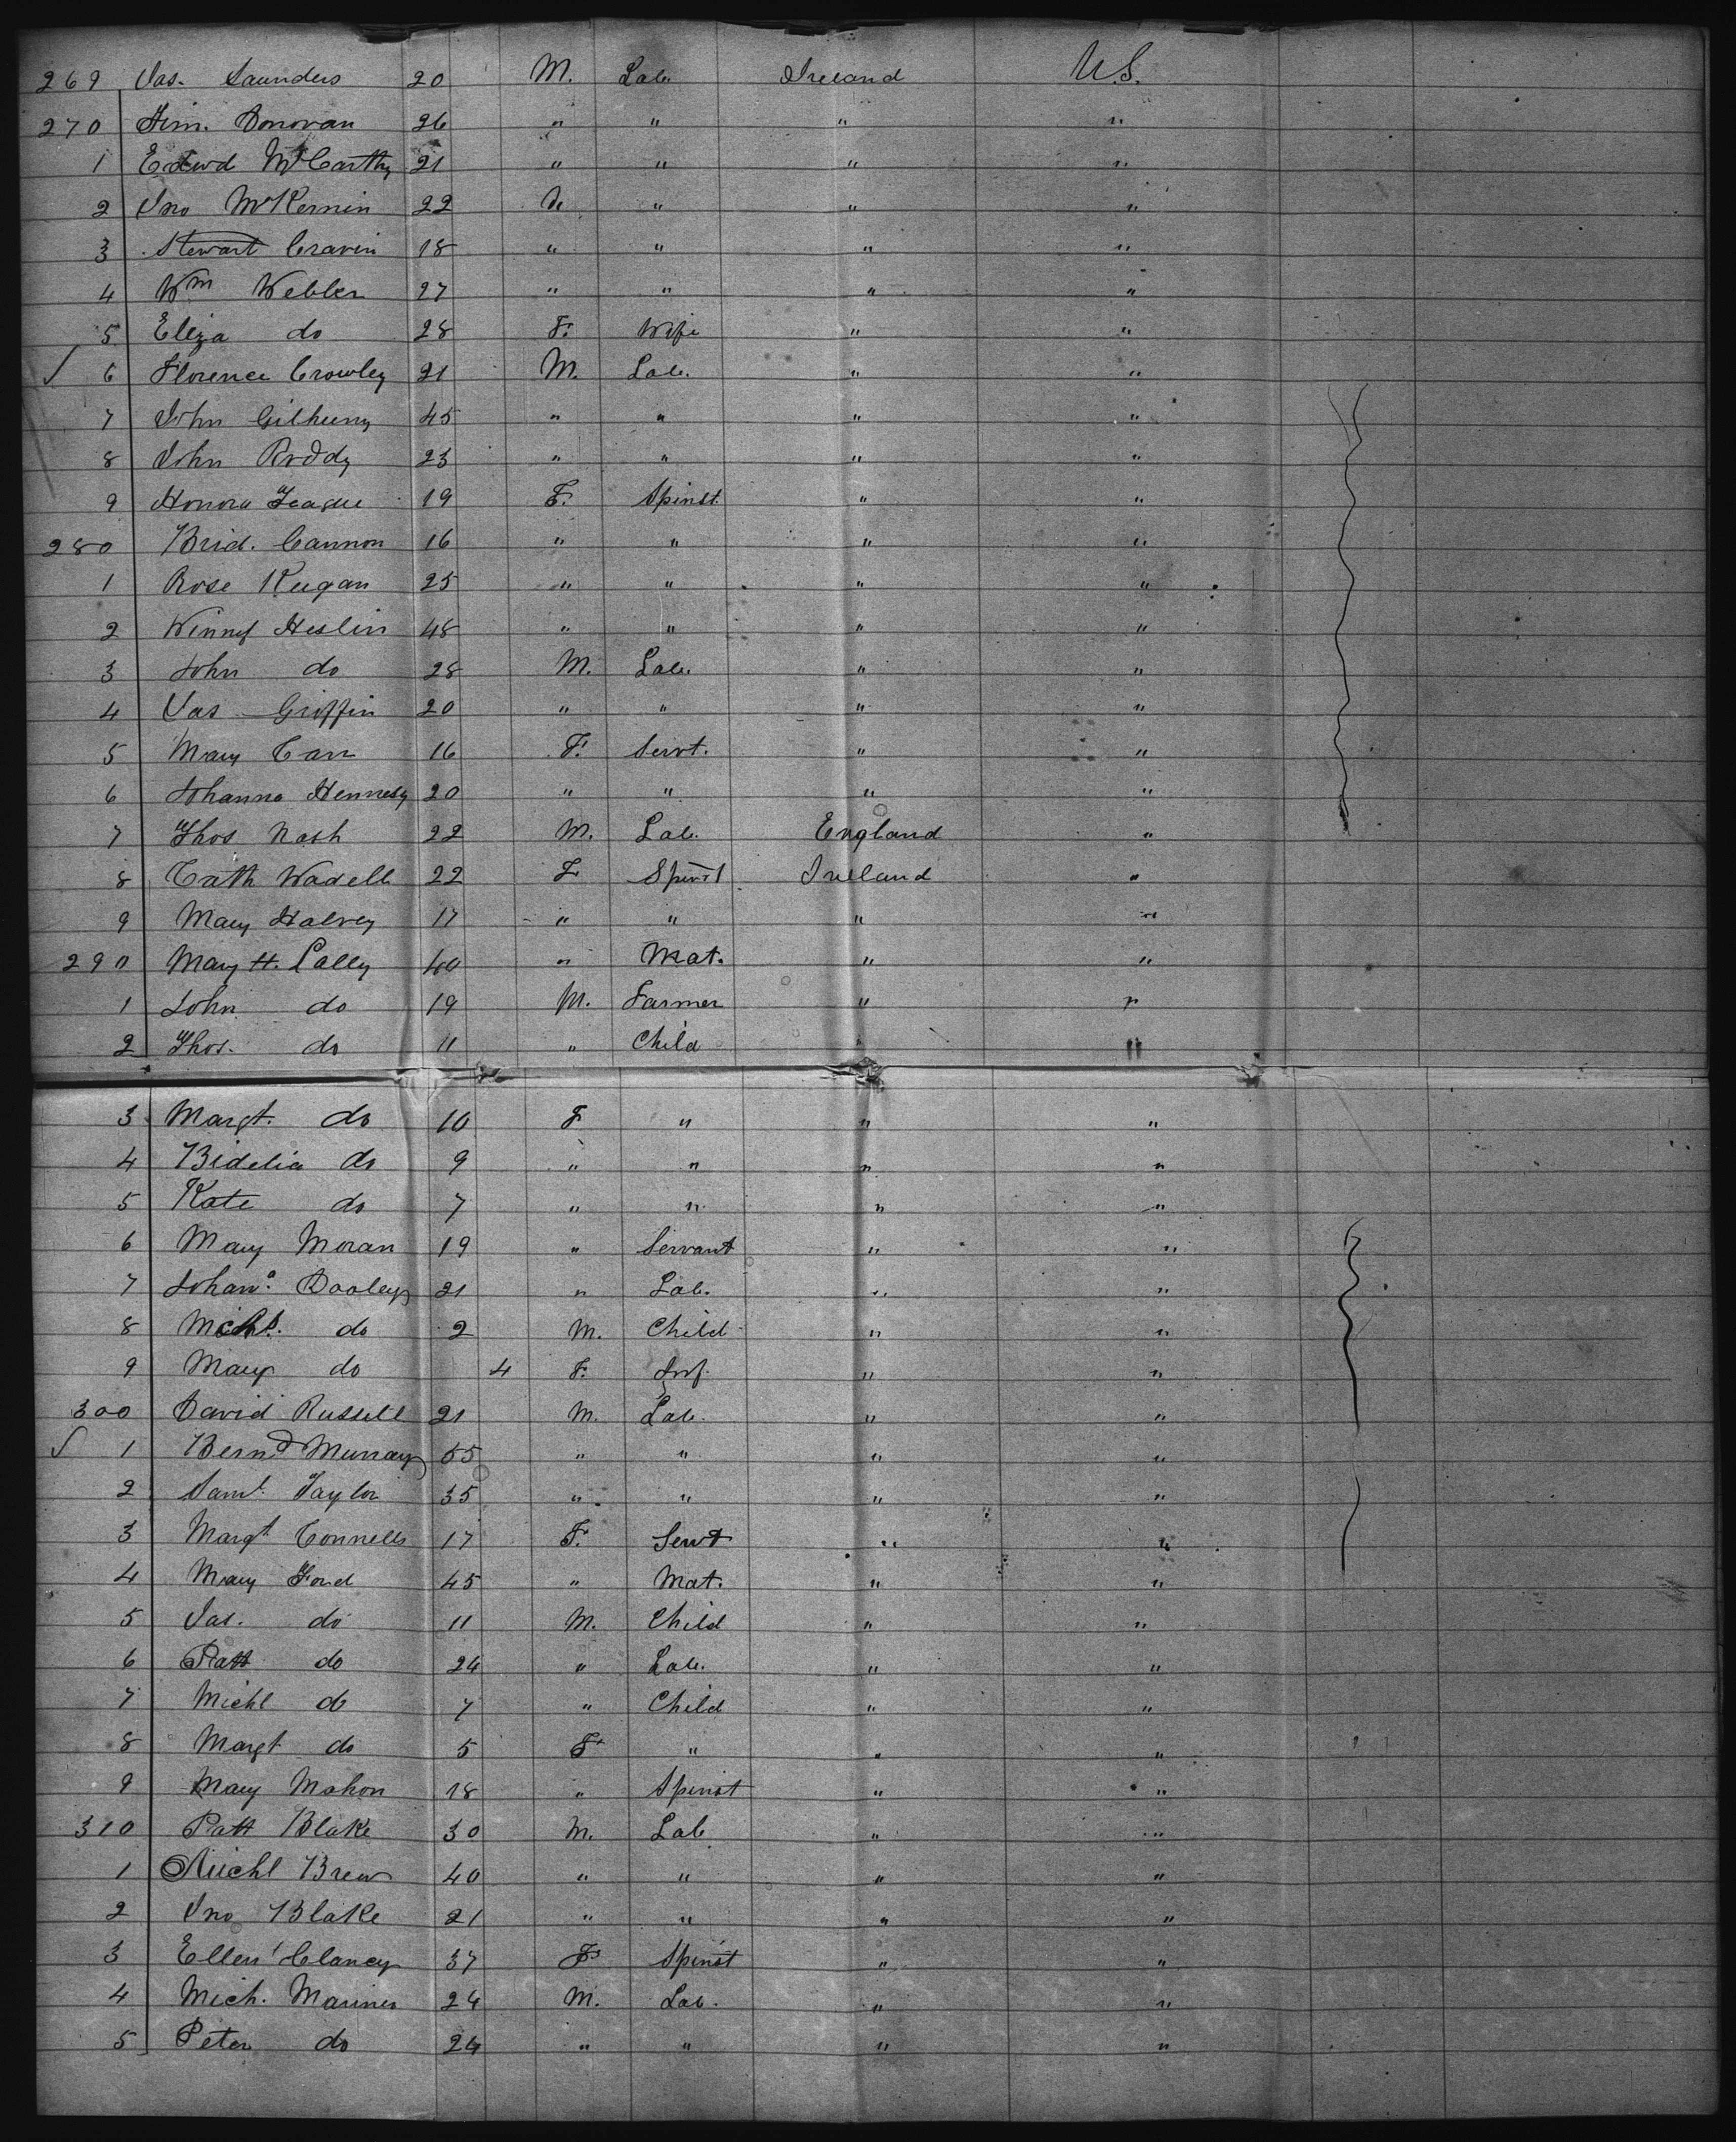 269 Jas. Saunders 20 M. Lab. Ireland U.S.
270 Tim. Donovan 26 " " " "
1 Edwd McCarthy 21 " " " "
2 Jno McKernin 22 " " "
3 Stewart Cravin 18 " " " "
4 Wm Webber 27 " " " "
5 Eliza do 28 F. Wife " "
6 Florence Crowley 21 M. Lab. " "
7 John Gilheeny 45 " " " "
8 John Roddy 23 " " " "
9 Honora Teague 19 F. Spinst. " "
280 Brid. Cannon 16 " " " "
1 Rose Keegan 25 " " " "
2 Winnef Heslin 48 " " " "
3 John do 28 M. Lab. " "
4 Jas Griffin 20 " " " "
5 Mary Carr 16 F. Servt. " "
6 Johanna Hennesy 20 " " " "
7 Thos Nash 22 M. Lab. England "
8 Cath Wadell 22 F Spinst Ireland "
9 Mary Halvey 17 " " " "
290 Mary H. Lally 40 " Mat. " "
1 John do 19 M. Farmer " "
2 Thos. do 11 " Child " "
3 Margt. do 10 F " " "
4 Bidelia do 9 " " " "
5 Kate do 7 " " " "
6 Mary Moran 19 " Servant " "
7 Johana Dooley 21 " Lab. " "
8 Michl. do 2 M. Child " "
9 Mary do 4 F. Inf. " "
300 David Russell 21 M. Lab. " "
1 Bernd Murray 55 " " " "
2 Saml. Taylor 35 " " " "
3 Margt Connells 17 F. Servt " "
4 Mary Ford 45 " Mat. " "
5 Jas. do 11 M. Child " "
6 Patt do 24 " Lab. " "
7 Michl do 7 " Child " "
8 Margt do 5 F " " "
9 Mary Mahon 18 " Spinst " "
310 Patt Blake 30 M. Lab " "
1 Michl Brew 40 " " " "
2 Jno Blake 21 " " " "
3 Ellen Clancy 37 F Spinst " "
4 Mich. Mariner 24 M. Lab. " "
5 Peter do 24 " " " "